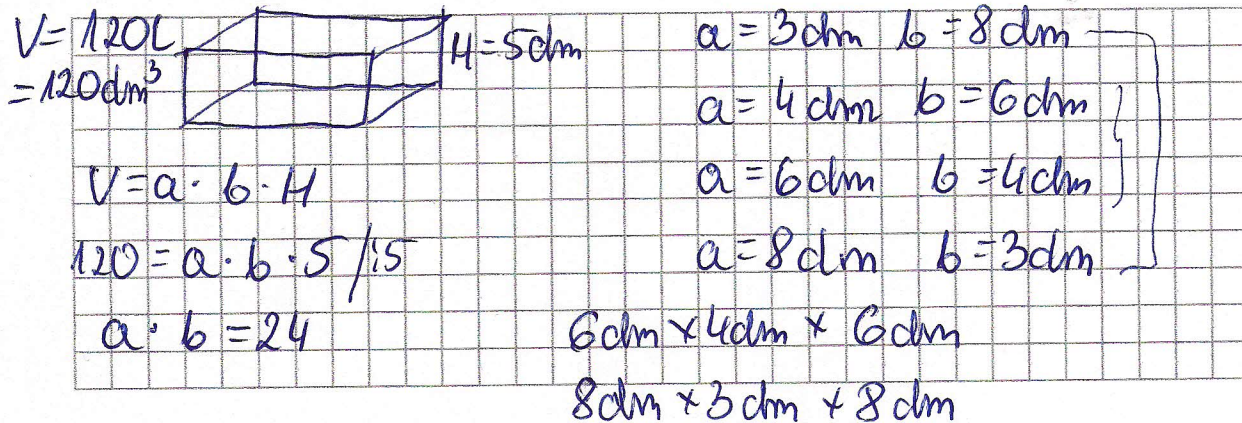 V=120L
=120dm³
H=5dm
V=a·b·H
120=a·b·5 /:5
a·b=24
a=3dm b=8dm
a=4dm b=6dm
a=6dm b=4dm
a=8dm b=3dm
6dm×4dm×6dm
8dm×3dm×8dm